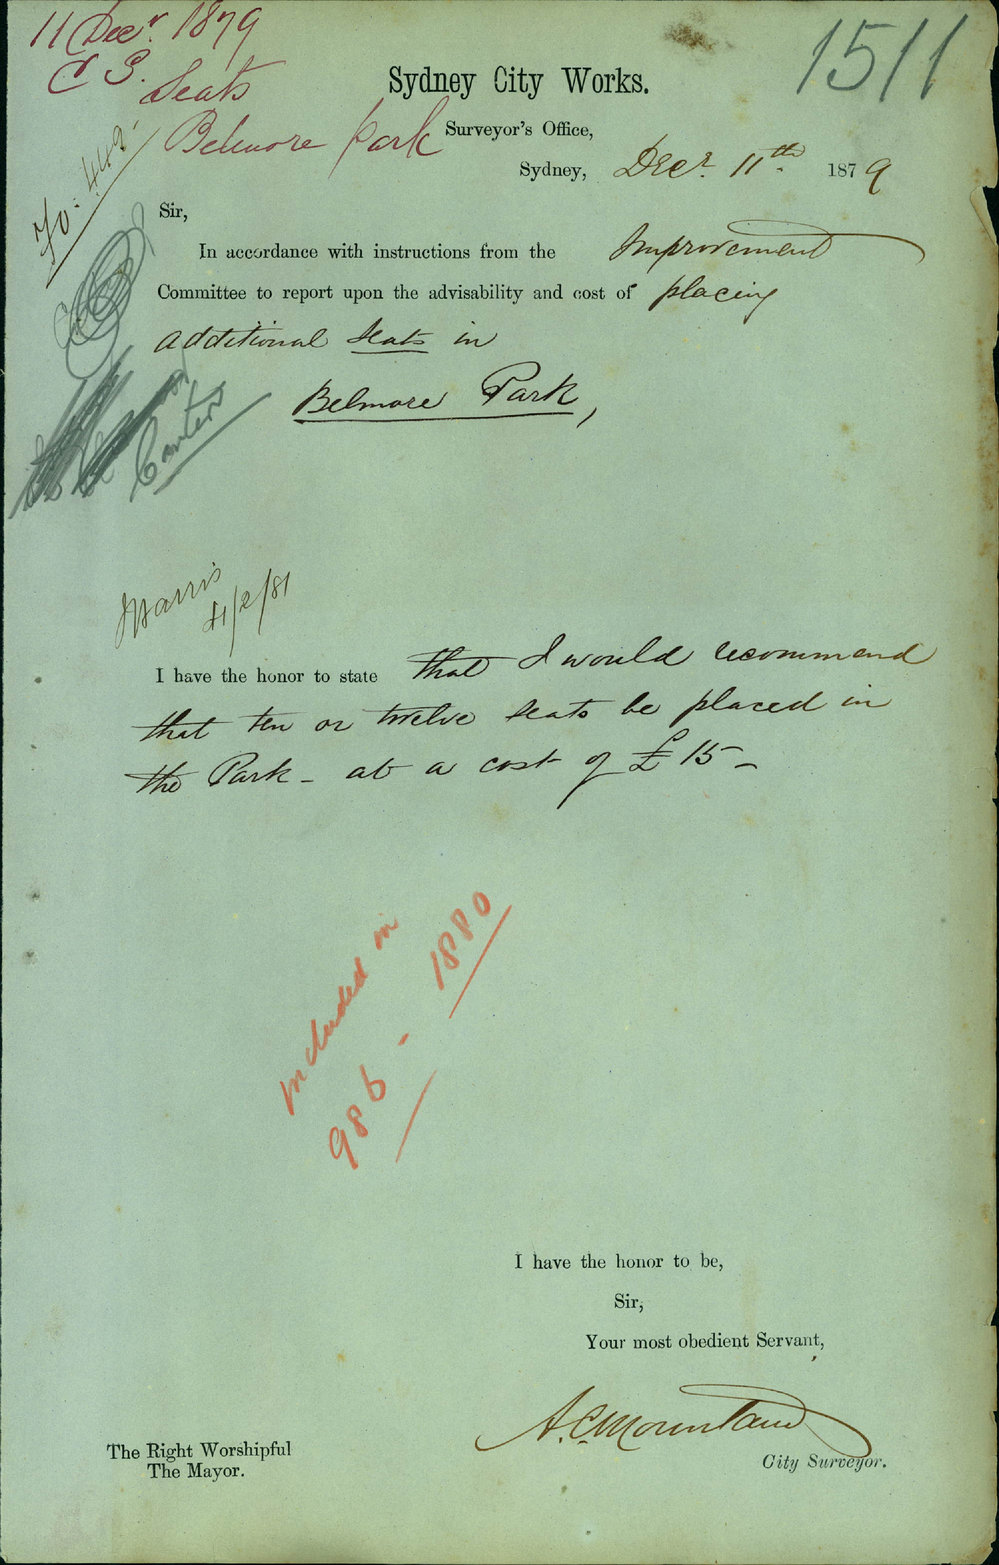 11 Decr. 1879
C S.
Seats
Belmore Park
1511
Fo: 449.
Sydney City Works.
Surveyor's Office,
Sydney, Decr. 11th. 1879
Sir,
In accordance with instructions from the Improvement
Committee to report upon the advisability and cost of placing
additional Seats in
Belmore Park,
Harris
I have the honor to state that I would recommend
that ten or twelve seats be placed in
the Park - at a cost of £15 -
Included in
986 - 1880
I have the honor to be,
Sir,
Your most obedient Servant,
A.C. Mountain
City Surveyor.
The Right Worshipful
The Mayor.